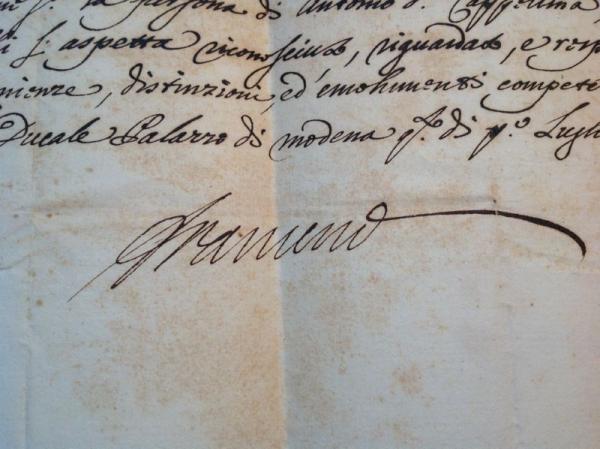 la persona di Antonio
si aspetta riconosciuto, riguardato, e
nienze, distinzioni, ed'emolumenti compete
Ducale Palazzo di modena di p.º Lugli